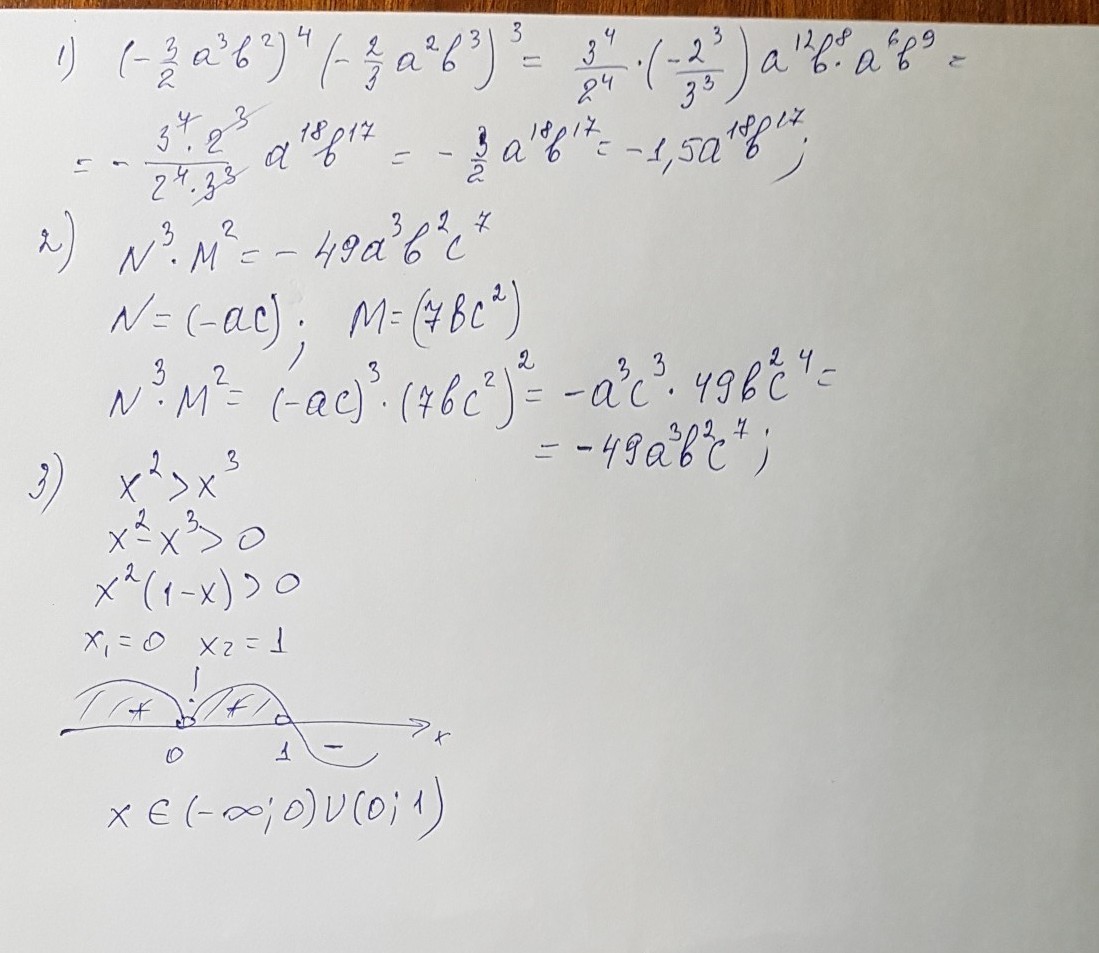 1) (-3/2 a³b²)⁴ (-2/3 a²b³)³ = 3⁴/2⁴ · (-2³/3³) a¹²b⁸ · a⁶b⁹ =
= - 3⁴·2³/2⁴·3³ a¹⁸b¹⁷ = - 3/2 a¹⁸b¹⁷ = -1,5a¹⁸b¹⁷;
2) N³·M² = - 49a³b²c⁷
N = (-ac); M = (7bc²)
N³·M² = (-ac)³·(7bc²)² = -a³c³·49b²c⁴ =
= -49a³b²c⁷;
3) x² > x³
x² - x³ > 0
x²(1-x) > 0
x₁ = 0 x₂ = 1
+ + x
0 1 -
x ∈ (-∞; 0) ∪ (0; 1)